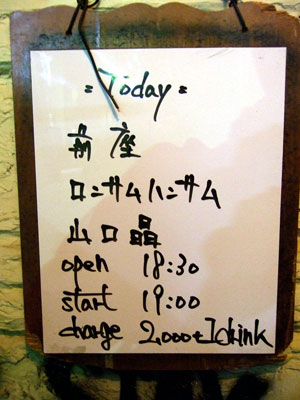 = Today =
前座
ロンサムハンサム
山口晶
open 18:30
start 19:00
charge 2,000+1drink